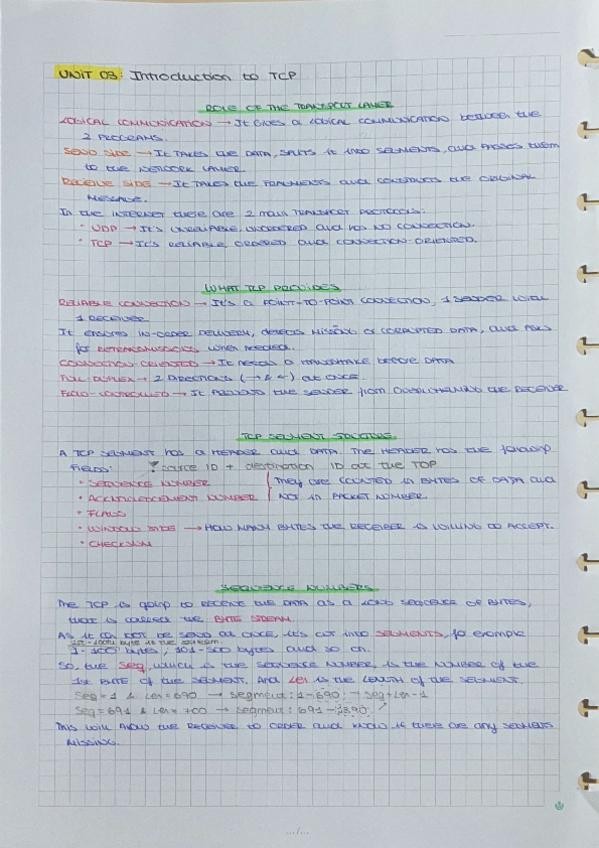 UNIT 03: Introduction to TCP
ROLE OF THE TRANSPORT LAYER
LOGICAL COMMUNICATION → It gives a LOGICAL COMMUNICATION between the
2 PROGRAMS.
SEND SIDE → It TAKES the DATA, splits it into SEGMENTS, and passes them
to the NETWORK LAYER
RECEIVE SIDE → It TAKES the FRAGMENTS and constructs the ORIGINAL
MESSAGE.
In the INTERNET there are 2 main TRANSPORT PROTOCOLS:
• UDP → It's UNRELIABLE, UNORDERED and has no CONNECTION.
• TCP → It's RELIABLE, ORDERED and CONNECTION-ORIENTED.
WHAT TCP PROVIDES
RELIABLE CONNECTION → It's a POINT-TO-POINT CONNECTION, 1 SENDER with
1 RECEIVER
It ensures IN-ORDER DELIVERY, detects missing or corrupted DATA, and asks
for RETRANSMISSIONS when needed.
CONNECTION-ORIENTED → It needs a HANDSHAKE before DATA
FULL DUPLEX → 2 DIRECTIONS (→ & ←) at once.
FLOW-CONTROLLED → It PREVENTS the SENDER from OVERWHELMING the RECEIVER
TCP SEGMENT STRUCTURE
A TCP SEGMENT has a HEADER and DATA. The HEADER has the following
FIELDS: source ID + destination ID at the TOP
• SEQUENCE NUMBER They are COUNTED in BYTES OF DATA and
• ACKNOWLEDGEMENT NUMBER NOT in PACKET NUMBER.
• FLAGS
• WINDOW SIZE → HOW MANY BYTES the RECEIVER is willing to ACCEPT.
• CHECKSUM
SEQUENCE NUMBERS
The TCP is going to RECEIVE the DATA as a LONG SEQUENCE OF BYTES,
that is called the BYTE STREAM.
As it can not be send at once, it's cut into SEGMENTS, for example
1st-100th byte of the stream
1-100 bytes, 101-500 bytes and so on.
So, the seq, which is the SEQUENCE NUMBER, is the NUMBER of the
1st BYTE of the SEGMENT. And Len is the LENGTH of the SEGMENT.
Seq = 1 & Len = 690 → segment: 1-690; → seq+Len-1
Seq = 691 & Len = 700 → segment: 691-1390
This will allow the RECEIVER to ORDER and know if there are any SEGMENTS
MISSING.
.../...